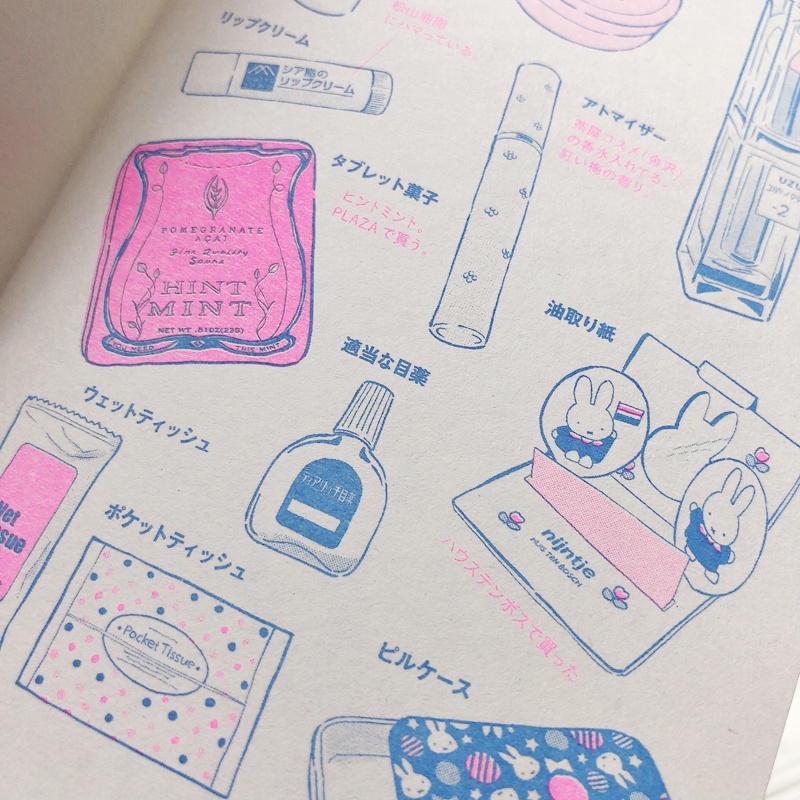 リップクリーム
松山油脂
にハマっている。
シア脂の
リップクリーム
アトマイザー
茶屋コスメ(金沢)
の香水入れてる。
紅い梅の香り。
UZU
-2
タブレット菓子
ヒントミント。
PLAZAで買う。
POMEGRANATE
ACAI
Fine Quality
Sours
HINT
MINT
NET WT .81OZ(23G)
YOU NEED
THIS MINT
油取り紙
適当な目薬
nijntje
HUIS TEN BOSCH
ハウステンボスで買った
ウェットティッシュ
Wet
Tissue
ポケットティッシュ
Pocket Tissue
ピルケース